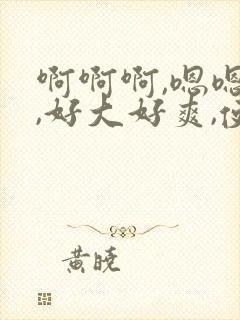 啊啊啊,嗯嗯
,好大好爽,
黄晓